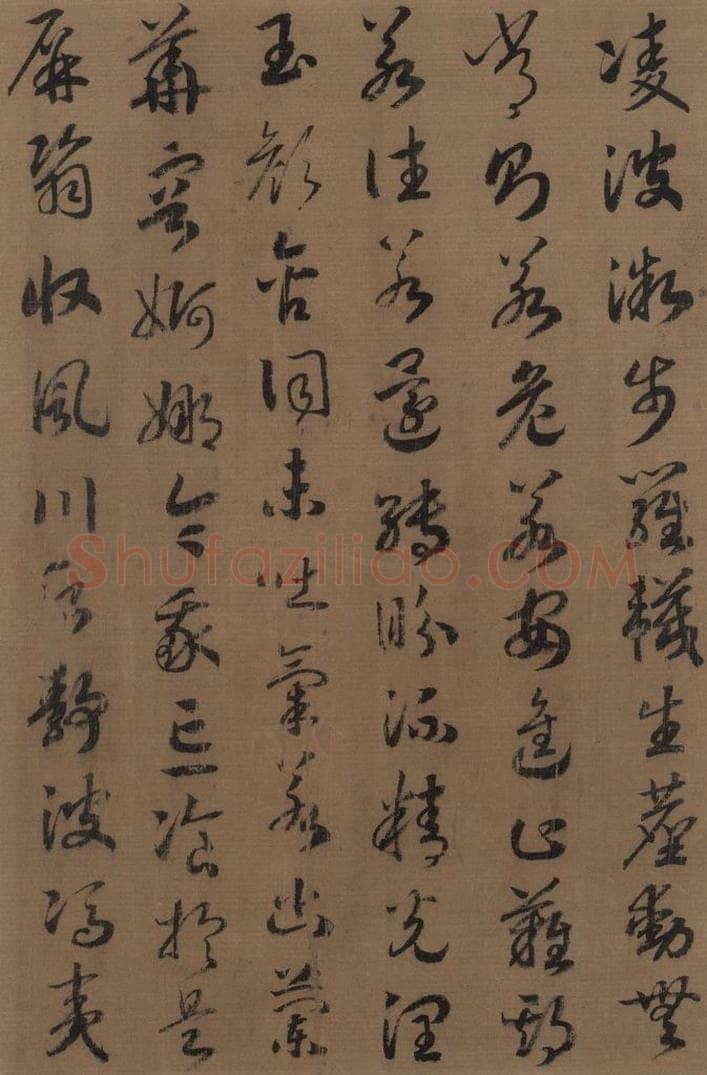 凌波微步羅韈生塵動無
常則若危若安進止難期
若往若還轉眄流精光潤
玉顏含詞未吐氣若幽蘭
華容婀娜令我忘飡於是
屏翳收風川后靜波馮夷
Shufaziliao.COM